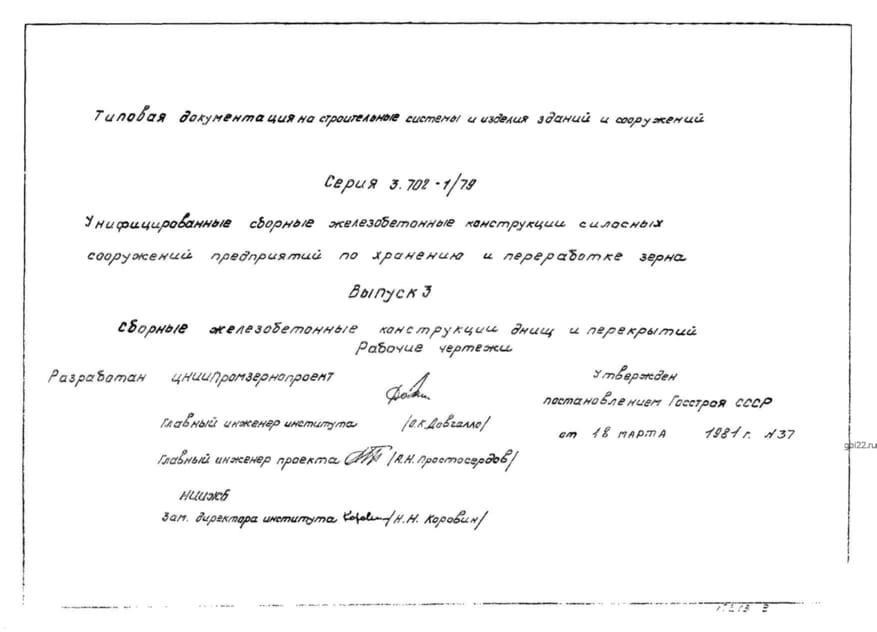 Типовая документация на строительные системы и изделия зданий и сооружений
Серия 3.702-1/79
Унифицированные сборные железобетонные конструкции силосных
сооружений предприятий по хранению и переработке зерна
Выпуск 3
Сборные железобетонные конструкции днищ и перекрытий
Рабочие чертежи
Разработан ЦНИИПромзернопроект
Утвержден
постановлением Госстроя СССР
Главный инженер института /О.К.Довгалло/
от 18 марта 1981г. №37
gpi22.ru
Главный инженер проекта /А.Н.Простосердов/
НИИЖБ
Зам. директора института /Н.Н. Коровин/